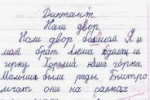 Диктант.
Наш двор.
Наш двор большой Я и
мой брат Миша
горку Хороша наша горка.
Малыши были рады. Быстро
мчат они на санках